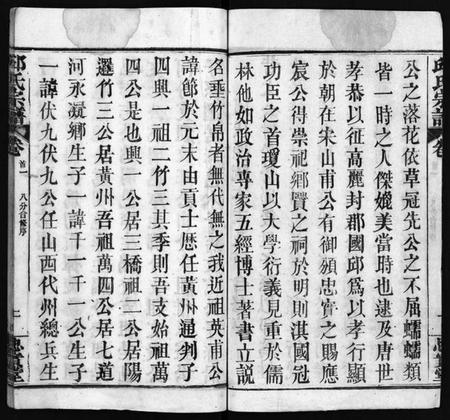 邱氏宗譜
卷
公之落花依草冠先公之不屈蠕蠕類
皆一時之人傑媲美當時也逮及唐世
孝恭以征高麗封郡國邱爲以孝行顯
於朝在宋山甫公有御頒忠實之賜應
宸公得崇祀鄉賢之祠於明則淇國冠
功臣之首瓊山以大學衍義見重於儒
林他如政治專家五經博士著書立說
名垂竹帛者無代無之我近祖英甫公
諱節於元末由貢士歷任黃州通判子
四興一祖二竹三其季則吾支始祖萬
四公是也興一公居三橋祖二公居陽
邏竹三公居黃州吾祖萬四公居七道
河永凝鄉生子一諱千一千一公生子
一諱伏九伏九公任山西代州總兵生
邱氏宗譜
卷首一
八分合修序